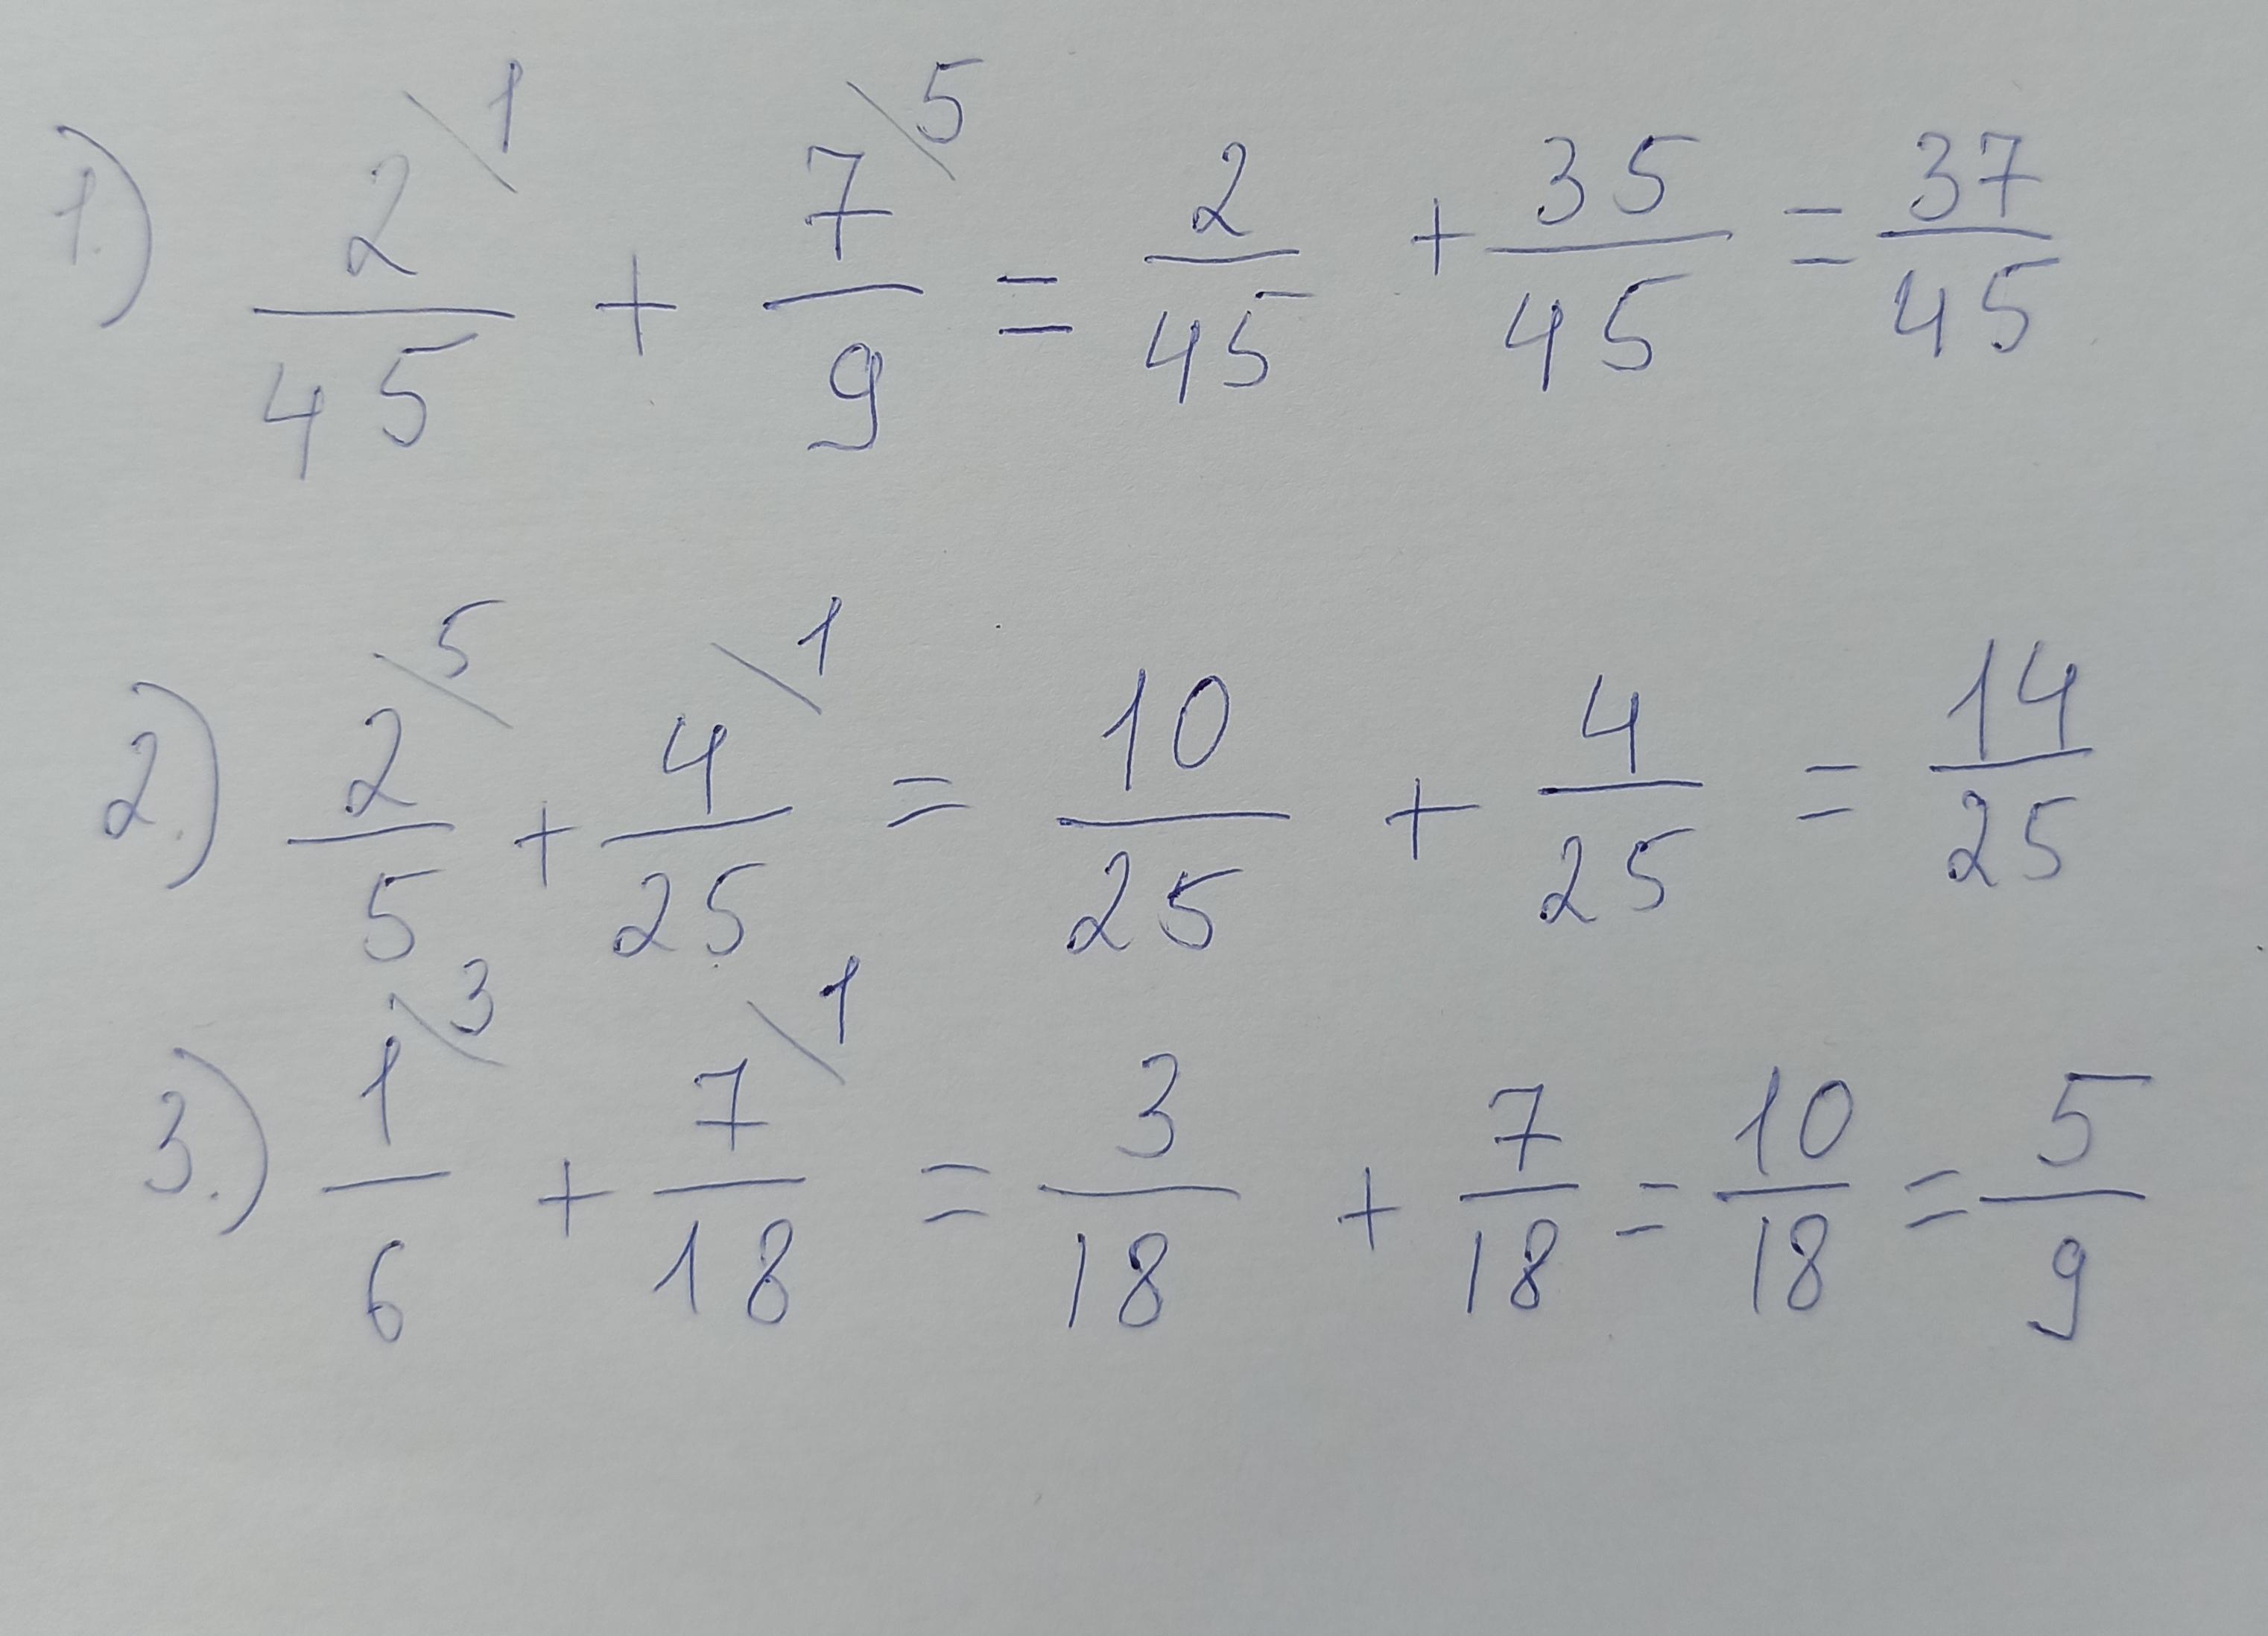 1.) 2\1/45 + 7\5/9 = 2/45 + 35/45 = 37/45
2.) 2\5/5 + 4\1/25 = 10/25 + 4/25 = 14/25
3.) 1\3/6 + 7\1/18 = 3/18 + 7/18 = 10/18 = 5/9